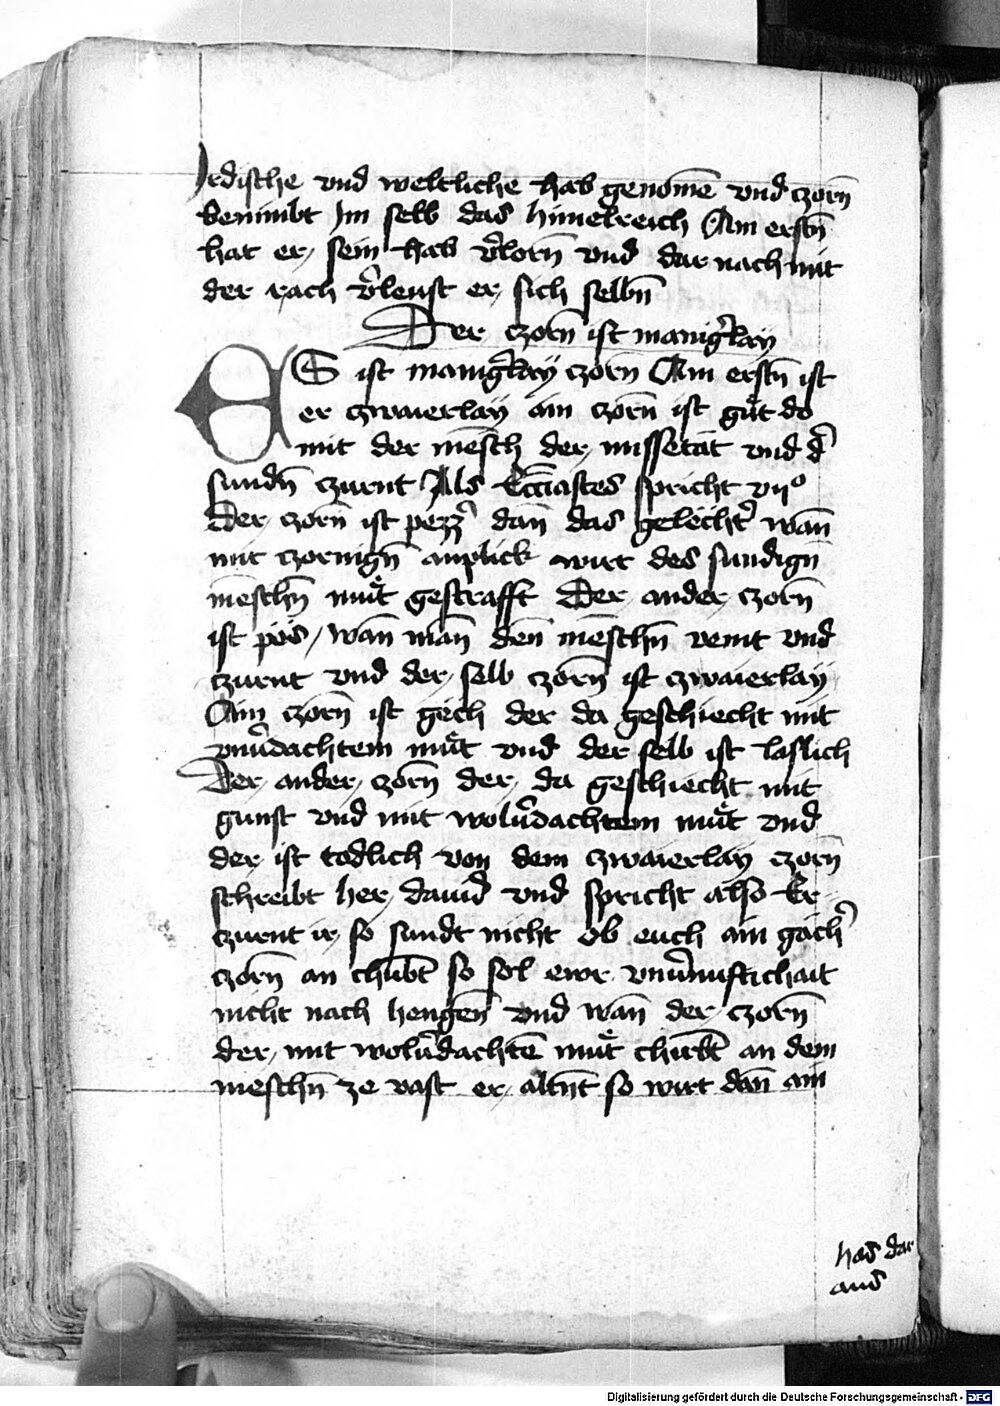 Irdische vnd weltliche hab genomē vnd czorn̄
benimbt Im selb das himelreich Am erstn̄
hat er sein hab v̾lorn̄ vnd dar nach mit
der rach v̾leust er sich selbn̄
Der czorn̄ ist manig̾lay
ES ist manig̾lay czorn̄ Am erstn̄ ist
er czwaierlay ain czorn̄ ist gůt do
mit der mēsch der missetat vnd d̾
sundn̄ czurnt Als Eccīastes spricht vijᵒ
Der czorn̄ ist pezz̾ dan̄ das gelecht̾ wan̄
mit czornign̄ anplick wirt des sundign̄
mēschn̄ můt gestrafft Der ander czorn̄
ist pös wan̄ man̄ den̄ mēschn̄ veint vnd
czurnt vnd der selb czorn̄ ist czwaierlay
Ain czorn̄ ist gech der da geschiecht mit
vnu̾dachtem můt vnd der selb ist laslich
Der ander czorn̄ der da geschiecht mit
gunst vnd mit wolu̾dachtem můt vnd
der ist todlich von dem czwaierlay czorn̄
schreibt her dauid vnd spricht also Er
czurnt ir so sundt nicht ob euch ain gäch̾
czorn̄ an chūbt so sol ewr vnu̾nuftichait
nicht nach hengen̄ vnd wan̄ der czorn̄
der mit wolu̾dachtē můt chūbt an dem
meschn̄ ze vast er altn̄t so wirt dan̄ ain
has dar
aus
Digitalisierung gefördert durch die Deutsche Forschungsgemeinschaft - DFG